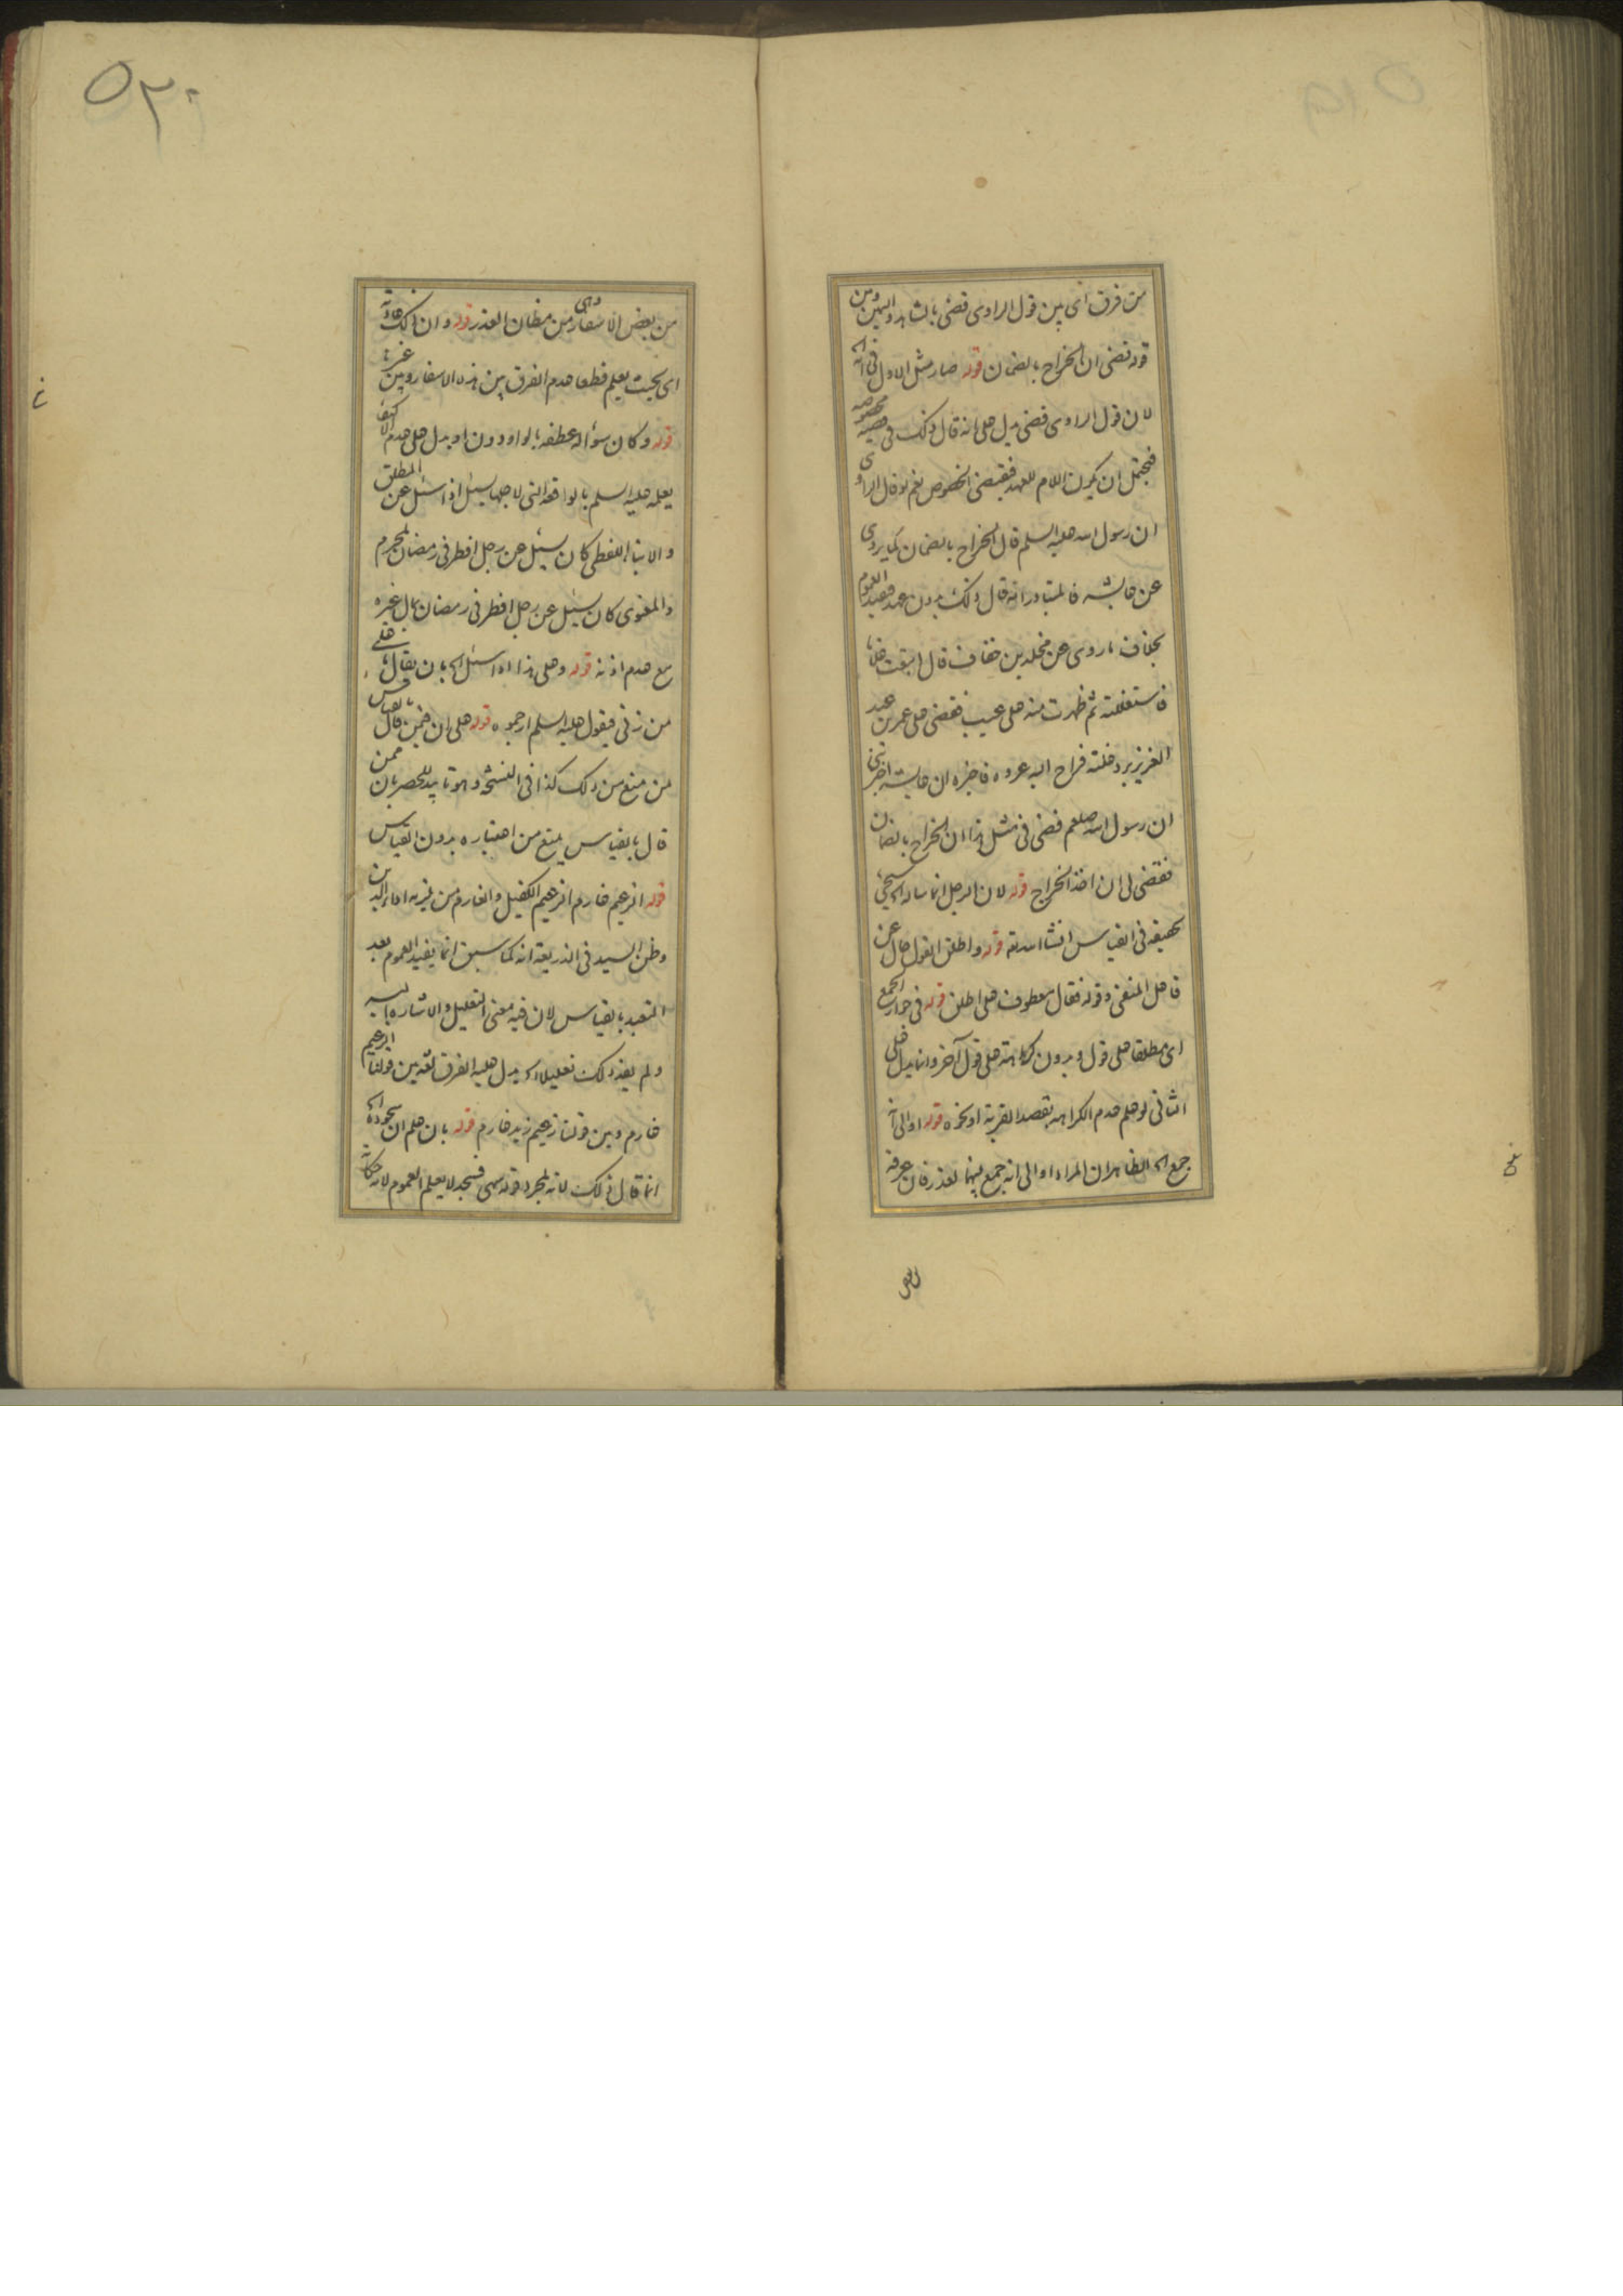 من فرق ای بین قول الراوی قضی بالشاهد والیمین و بین
قوله قضی ان الخراج بالضمان قوله صار مثل الاول فی انه
لان قول الراوی قضی یدل علی انه قال ذلک فی قضیه مخصوصه
فیحتمل ان یکون اللام للعهد فیقتضی الخصوص نعم لو قال الراوی
ان رسول الله علیه السلم قال الخراج بالضمان کما یروی
عن عایشه فالمتبادر انه قال ذلک بدون عهد فیفید العموم
بخلاف ما روی عن مخلد بن خفاف قال ابتعت غلاما
فاستغللته ثم ظهرت منه علی عیب فقضی علی عمر بن عبد
العزیز برد غلته فراح الیه عروه فاخبره ان عایشه اخبرتنی
ان رسول الله صلعم قضی فی مثل هذا ان الخراج بالضمان
فقضی لی ان اخذ الخراج قوله لان الرجل انما ساد ای سیجیء
تحقیقه فی القیاس انشا الله تعه قوله و اطلق القول حال عن
فاعل المنفی و قوله فقال معطوف علی اطلق قوله فی جواز الجمع
ای مطلقا علی قول و بدون کراهته علی قول آخر و انما یدل علی
الثانی لو علم عدم الکراهه بقصد القربة او نحوه قوله او الی آ
جمع ای الظاهر ان المراد او الی انه جمع بینهما لعذر فان عرفه
من بعض الاسفار وهی من مظان العذر قوله و ان ذلک عادته
ای بحیث یعلم قطعا عدم الفرق بین هذه الاسفار و بین غیرها
قوله و کان سؤاله عطفه بالواو دون او یدل علی عدم الاکتفا
یعلمه علیه السلم بالواقعه التی لاجلها سئل اذا سئل عن المطلق
و الانباء اللفظی کان سئل عن رجل افطر فی رمضان بمحرم
و المعنوی کان سئل عن رجل افطر فی رمضان بمال غیره
مع عدم اذنه قوله و علی هذا اذا سئل ای بان یقال ما علی
من زنی فیقول علیه السلم ارجموه قوله علی ان فیمن قال بالقیاس
من منع من ذلک کذا فی النسخ و هو تایید للحصر بان ممن
قال بالقیاس یمنع من اعتباره بدون القیاس
قوله الزعیم غارم الزعیم الکفیل و الغارم من یلزمه اداء الدین
و ظن السید فی الذریعة انه کما سبق انما یفید العموم بعد
التعبد بالقیاس لان فیه معنی التعلیل و الاشاره الیه
و لم یفد ذلک تعلیلا ای یدل علیه الفرق لغة بین قولنا الزعیم
غارم و بین قولنا زعیم زید غارم قوله بان علم ان سجوده ای
انما قال ذلک لانه لمجرد قوله سهی فسجد لا یعلم العموم لانه حکایه